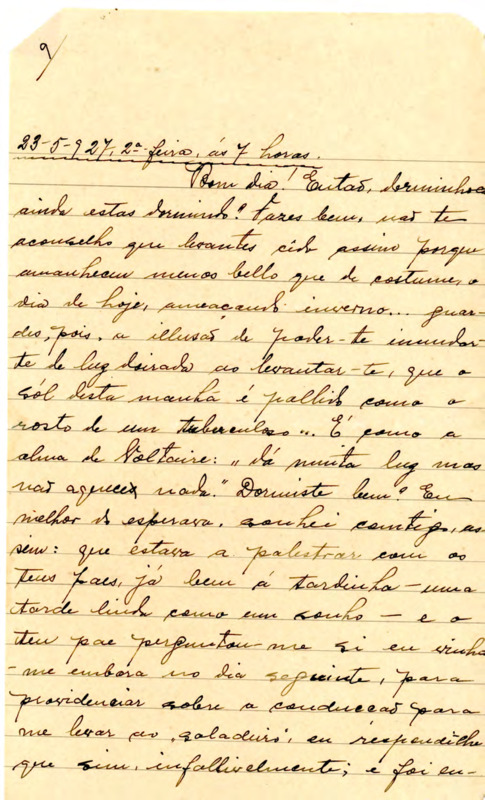 9/
23-5-927, 2ª feira, ás 7 horas.
Bom dia! Então, dorminhoca
ainda estas dormindo? Fazes bem, não te
aconselho que levantes cêdo assim porque
amanheceu menos bello que de costume, o
dia de hoje, ameaçando inverno... guar-
des, pois, a illusão de poder-te inundar-
te de luz doirada ao levantar-te, que o
sól desta manhã é pallido como o
rosto de um tuberculoso... É como a
alma de Voltaire: "dá muita luz mas
não aquece nada." Dormiste bem? Eu
melhor do esperava, sonhei comtigo, as-
sim: que estava a palestrar com os
teus paes, já bem á tardinha — uma
tarde linda como um sonho — e o
teu pae perguntou-me si eu vinha
-me embora no dia seguinte, para
providenciar sobre a conducção para
me levar ao "saladeiro", eu respondi-lhe
que sim, infallivelmente; e foi en-